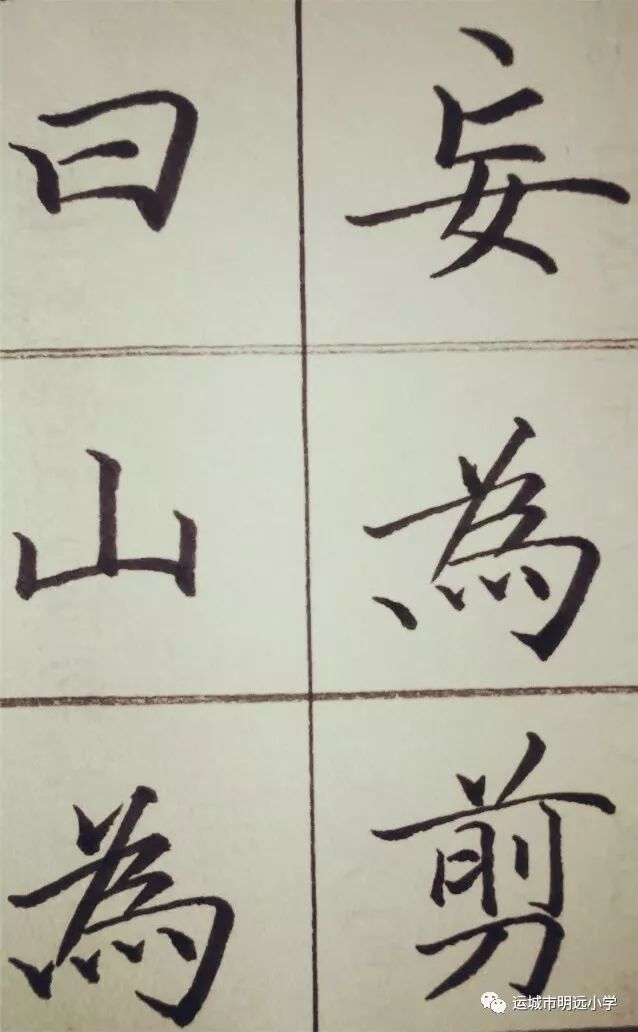 妄為剪
曰山為
运城市明远小学